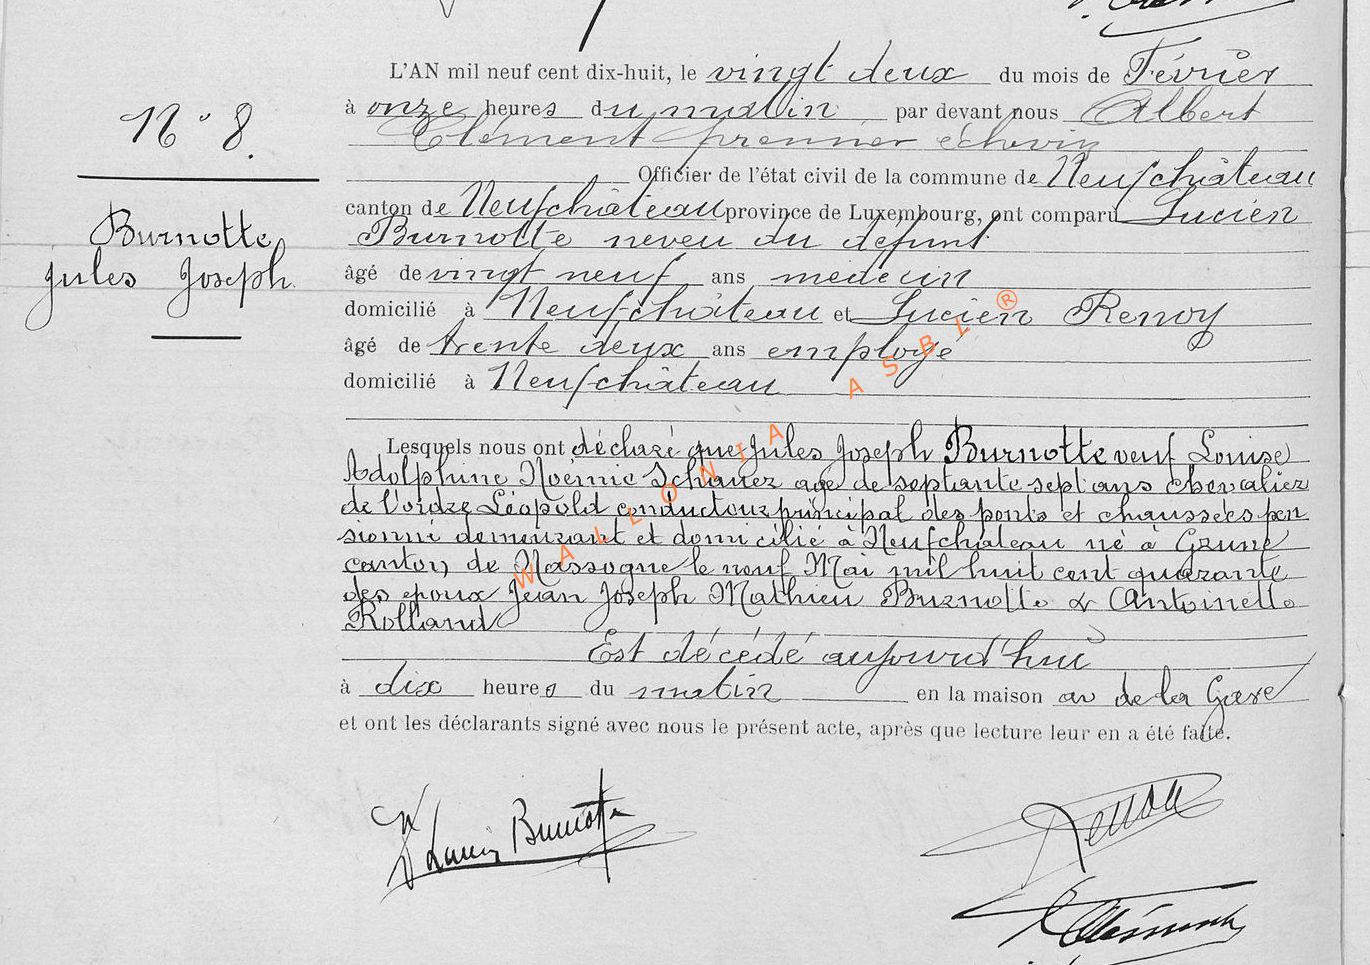 L'AN mil neuf cent dix-huit, le vingt deux du mois de Février
à onze heures du matin par devant nous Albert
Clément premier échevin
N° 8.
Officier de l'état civil de la commune de Neufchâteau
canton de Neufchâteau province de Luxembourg, ont comparu Lucien
Burnotte neveu du défunt
Burnotte
Jules Joseph.
âgé de vingt neuf ans médecin
domicilié à Neufchâteau et Lucien Renoy
âgé de trente deux ans employé
domicilié à Neufchâteau
WALLONIA ASBL ®
Lesquels nous ont déclaré que Jules Joseph Burnotte veuf Louise
Adolphine Noémie âgé de septante sept ans chevalier
de l'ordre Léopold conducteur principal des ponts et chaussées pen
sionné demeurant et domicilié à Neufchâteau né à Grune
canton de Nassogne le neuf Mai mil huit cent quarante
des époux Jean Joseph Mathieu Burnotte & Antoinette
Rolland
Est décédé aujourd'hui
à dix heures du matin en la maison av de la Gare
et ont les déclarants signé avec nous le présent acte, après que lecture leur en a été faite.
Dr Lucien Burnotte
Renoy
Clément